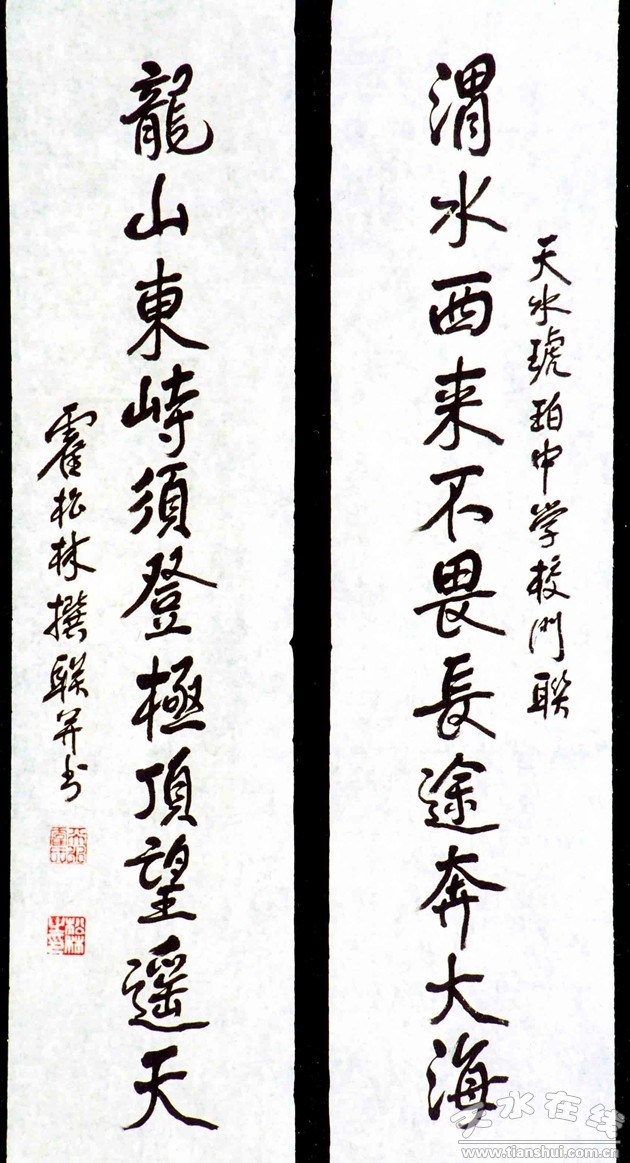 天水琥珀中学校门联
渭水西来不畏長途奔大海
龍山東峙須登極頂望遥天
霍松林撰联并书
天水在线
www.tianshui.com.cn